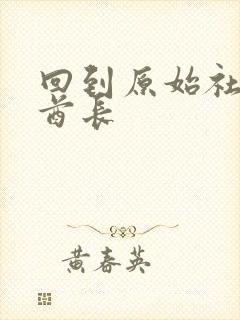 回到原始社
酋长
黄春英